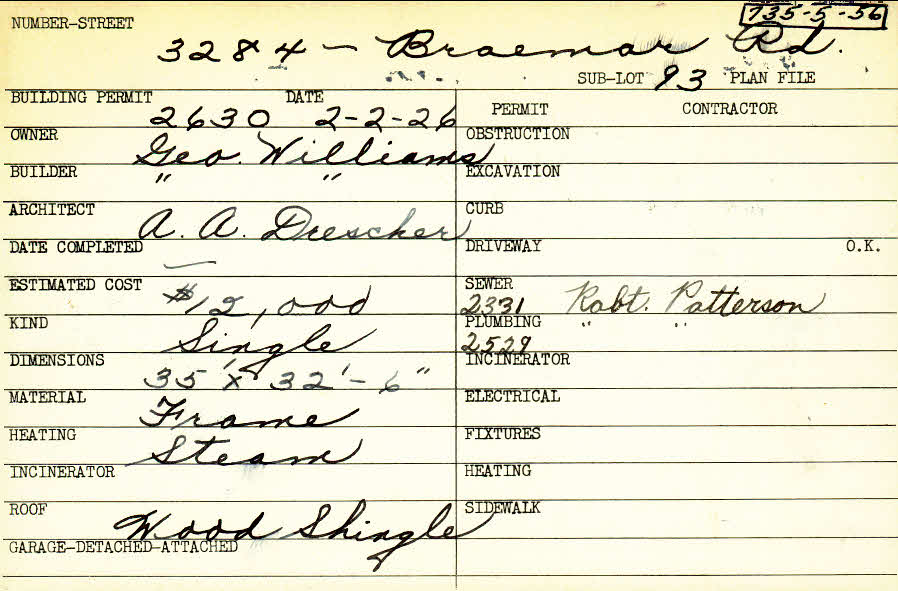 NUMBER-STREET 735-5-56
3284 - Braemar Rd.
SUB-LOT 93 PLAN FILE
BUILDING PERMIT DATE PERMIT CONTRACTOR
2630 2-2-26
OWNER Geo. Williams OBSTRUCTION
BUILDER " " EXCAVATION
ARCHITECT A. A. Drescher CURB
DATE COMPLETED — DRIVEWAY O.K.
ESTIMATED COST $12,000 SEWER
2331 Robt. Patterson
KIND Single PLUMBING " "
2529
DIMENSIONS 35' x 32'-6" INCINERATOR
MATERIAL Frame ELECTRICAL
HEATING Steam FIXTURES
INCINERATOR HEATING
ROOF Wood Shingle SIDEWALK
GARAGE-DETACHED-ATTACHED